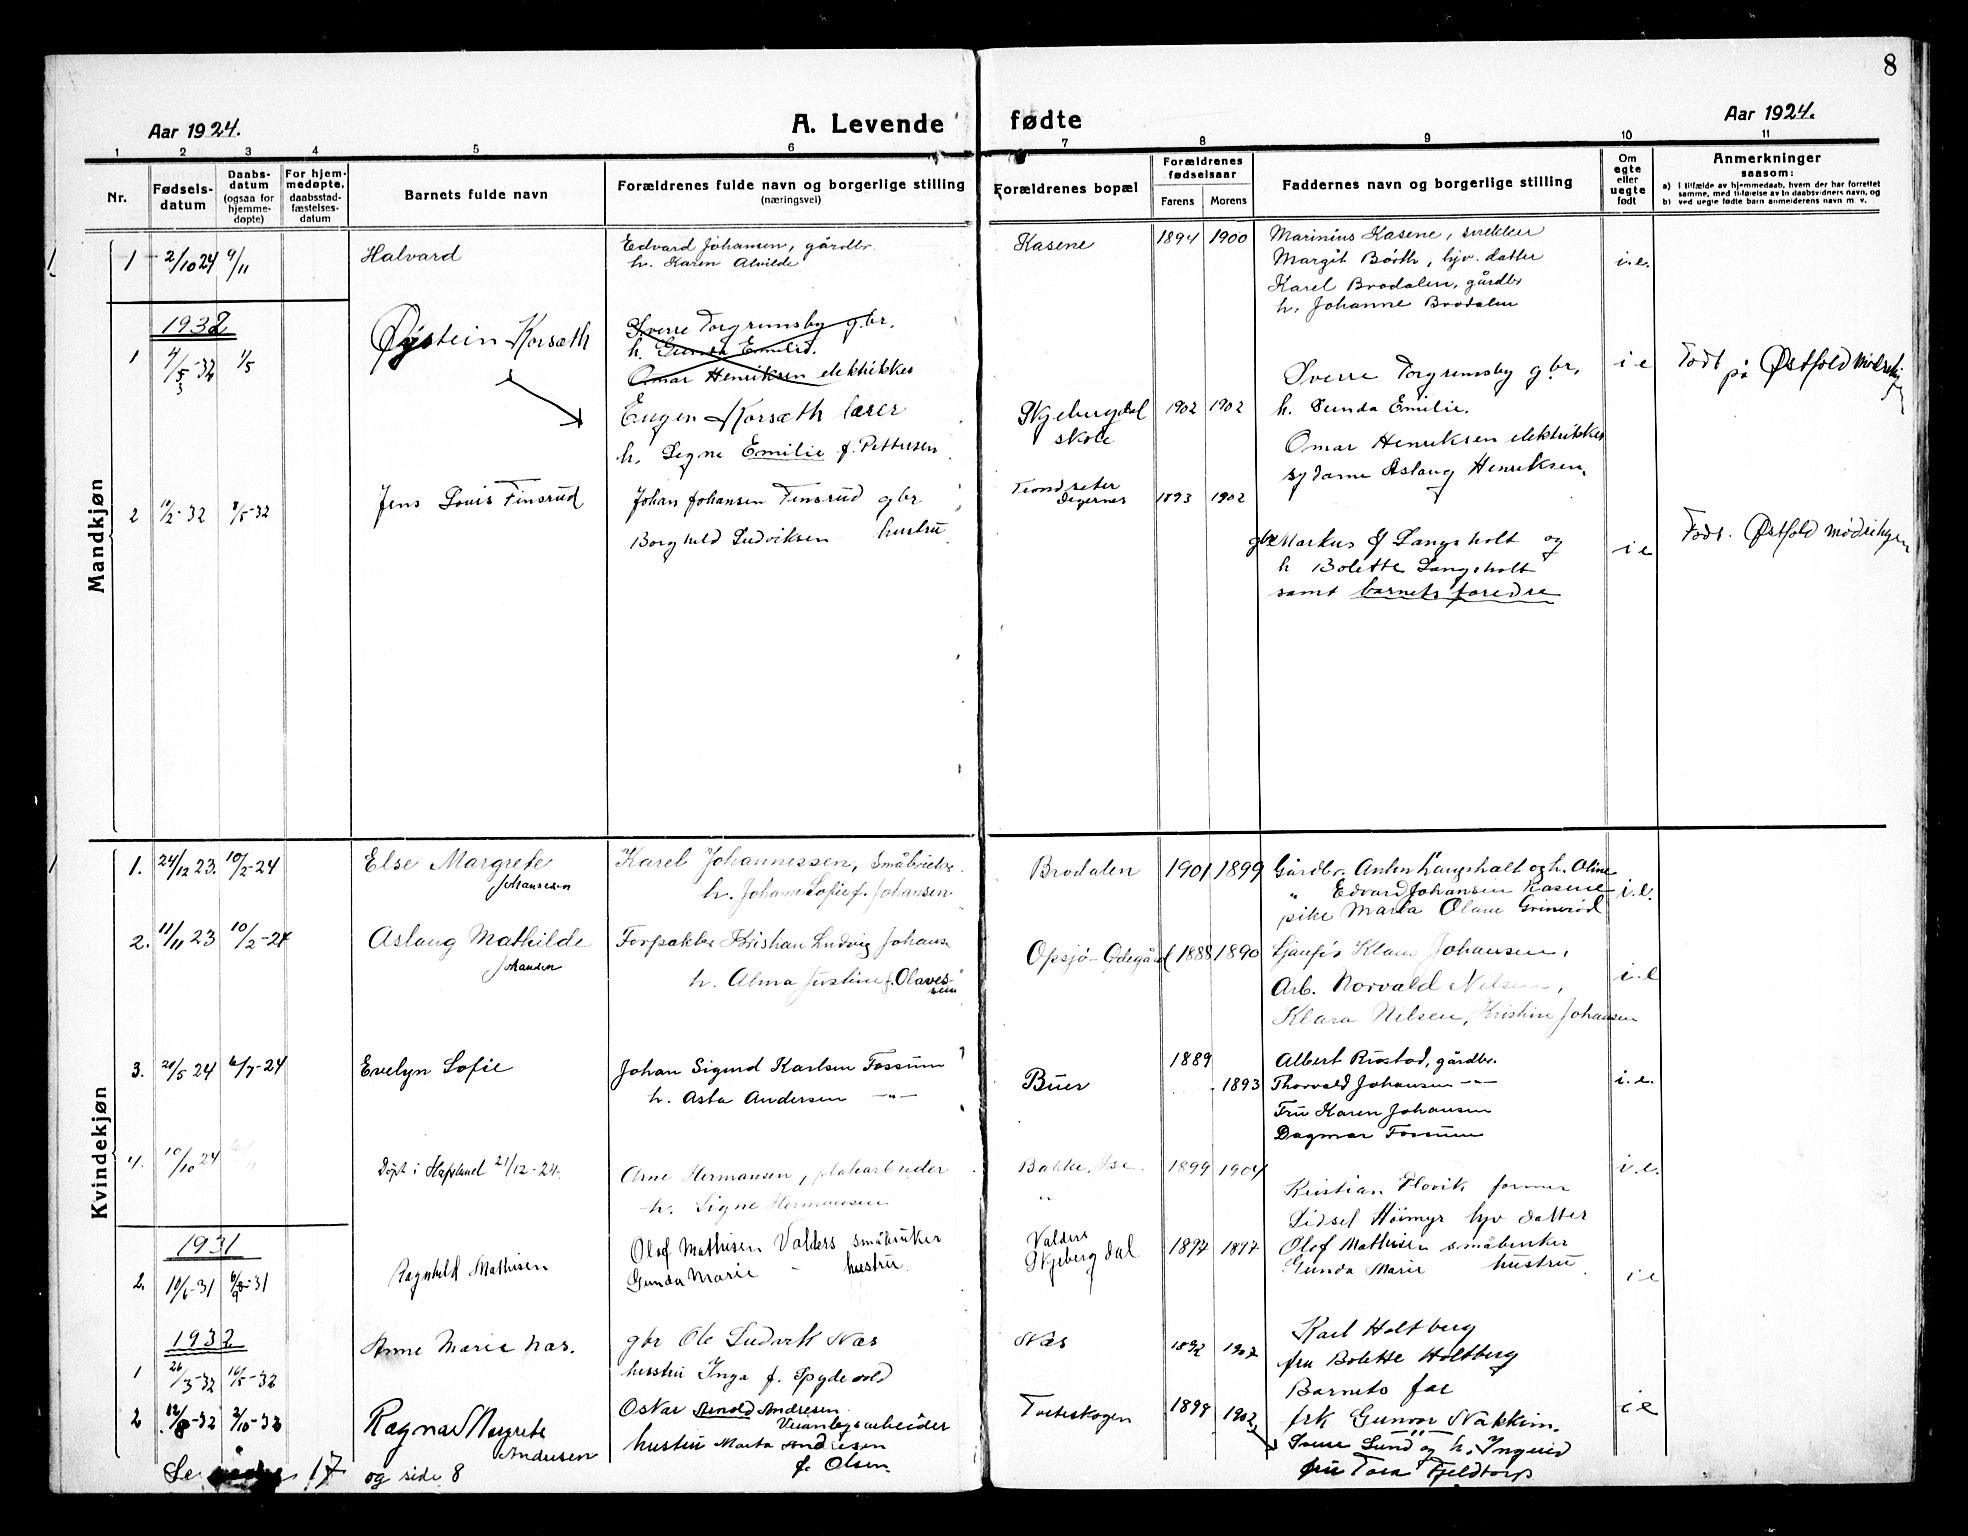 8
Aar 1924.
A. Levende fødte
Aar 1924.
1 2 3 4 5 6 7 8 9 10 11
Nr.
Fødsels-
datum
Daabs-
datum
(ogsaa for
hjemme-
døpte)
For hjem-
medøpte.
daabsstad-
fæstelses-
datum
Barnets fulde navn
Forældrenes fulde navn og borgerlige stilling
(næringsvei)
Forældrenes bopæl
Forældrenes
fødselsaar
Farens Morens
Faddernes navn og borgerlige stilling
Om
egte
eller
uegte
født
Anmerkninger
saasom:
a) I tilfælde av hjemmedaab, hvem der har forrettet
samme, med tilføielse av to daabsvidners navn, og
b) ved uegte fødte barn anmelderens navn m. v.
Mandkjøn
1 1 2/10 24 9/11 Halvard
Edvard Johansen, gårdbr.
h. Karen Alvilde
Kasene 1894 1900
Marinius Kasene, snekker
Margit Børth, hjv. datter
Karel Brodalen, gårdbr
h. Johanne Brodalen
i.e.
1932
1 4/3-32 1/5 Øystein Korsæth
Sverre Torgrimsby gbr.
h. Gunda Emilie.
Omar Henriksen elektrikker
Eugen Korsæth lærer
h. Signe Emilie f. Pettersen
Skjebergdal
skole
1902 1902
Sverre Torgrimsby gbr,
h. Gunda Emilie.
Omar Henriksen elektrikker
sydame Aslaug Henriksen
i e
Født
på Østfold
2 10/2-32 8/5-32 Jens Louis Finsrud
Johan Johansen Finsrud gbr
Borghild Ludviksen hustru
Degernes 1893 1902
gbr Markus Langsholt og
h Bolette Langsholt
samt barnets foredre
i e
Født. Østfold
Kvindekjøn
1 1. 24/12 23. 10/2-24 Else Margrete
Johannesen
Karel Johannessen, småbruker
h. Johane Sofie f. Johansen
Brodalen 1901 1899
Gårdbr. Anton Langsholt og h. Oline
" Edvard Johansen Kasene
pike Marta Olane Grinerød
i.e.
2. 11/11 23 10/2-24 Aslaug Mathilde
Johansen
Forpakter Kristian Ludvig Johans
h. Alma Justine f. Olaves-
sen
Opsjø-Ødegård 1888 1890
Klaus Johansen,
Arb. Norvald Nilsen,
Klara Nilsen, Kristine Johansen
i.e
3. 20/5 24 6/7-24 Evelyn Sofie
Johan Sigurd Karlsen Fossum
h. Asta Andersen -"-
Buer 1889
1893
Albert Rustad, gårdbr.
Thorvald Johansen -"-
Fru Karen Johansen
Dagmar Fossum
i.e.
4. 10/10 24
Døpt i Hafslund 21/12-24.
Arne Hermansen, platearbeider
h. Signe Hermansen
Bakke, Ise. 1899 1904
"
i.e.
Kristian Flovik former
Lidsel Høimyr hjv datter
1931
2. 10/6-31 6/9-31 Ragnhild Mathisen
Olof Mathisen Valders småbruker
Gunda Marie - hustru
Valders
Skjebergdal
1897 1897
Olof Mathisen småbruker
Gunda Marie hustru
i e
1932
1 26/3-32 16/5-32 Anne Marie Næs.
gbr Ole Ludvik Næs
hustru Inga f. Spydevold
Næs 1892 1907
Karl Holtberg
fru Bolette Holtberg
Barnets far
frk Gunvor Nakkim.
i e
2 12/8-32 2/10-32 Ragna Margrete
Andresen
Oskar Arnold Andresen
Veianlegsarbeider
hustru Marta Andresen
f. Olsen.
Torteskogen 1899 1902
Sverre Lund og h. Ingrid
fru Tora Fjeldtorp
Se 17 og side 8